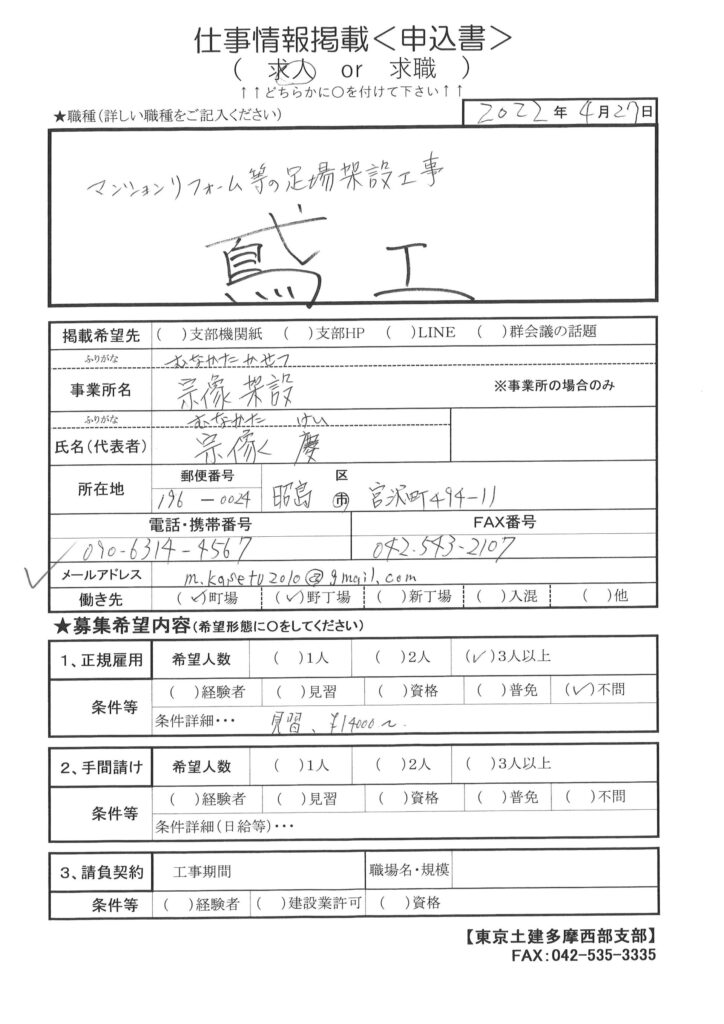 仕事情報掲載＜申込書＞
（ 求人 or 求職 ）
↑↑どちらかに○を付けて下さい↑↑
★職種（詳しい職種をご記入ください）
2022年4月27日
マンションリフォーム等の足場架設工事
鳶工
掲載希望先 （ ）支部機関紙 （ ）支部HP （ ）LINE （ ）群会議の話題
ふりがな むなかたかせつ
事業所名 宗像架設 ※事業所の場合のみ
ふりがな むなかた けい
氏名（代表者） 宗像 慶
所在地 郵便番号 196-0024 昭島 区 市 宮沢町494-11
電話・携帯番号 FAX番号
090-6314-4567 042-543-2107
✓メールアドレス m.kasetu2010@gmail.com
働き先 （✓）町場 （✓）野丁場 （ ）新丁場 （ ）入混 （ ）他
★募集希望内容（希望形態に○をしてください）
1、正規雇用 希望人数 （ ）1人 （ ）2人 （✓）3人以上
条件等 （ ）経験者 （ ）見習 （ ）資格 （ ）普免 （✓）不問
条件詳細・・・ 見習、¥14000〜
2、手間請け 希望人数 （ ）1人 （ ）2人 （ ）3人以上
条件等 （ ）経験者 （ ）見習 （ ）資格 （ ）普免 （ ）不問
条件詳細（日給等）・・・
3、請負契約 工事期間 職場名・規模
条件等 （ ）経験者 （ ）建設業許可 （ ）資格
【東京土建多摩西部支部】
FAX：042-535-3335